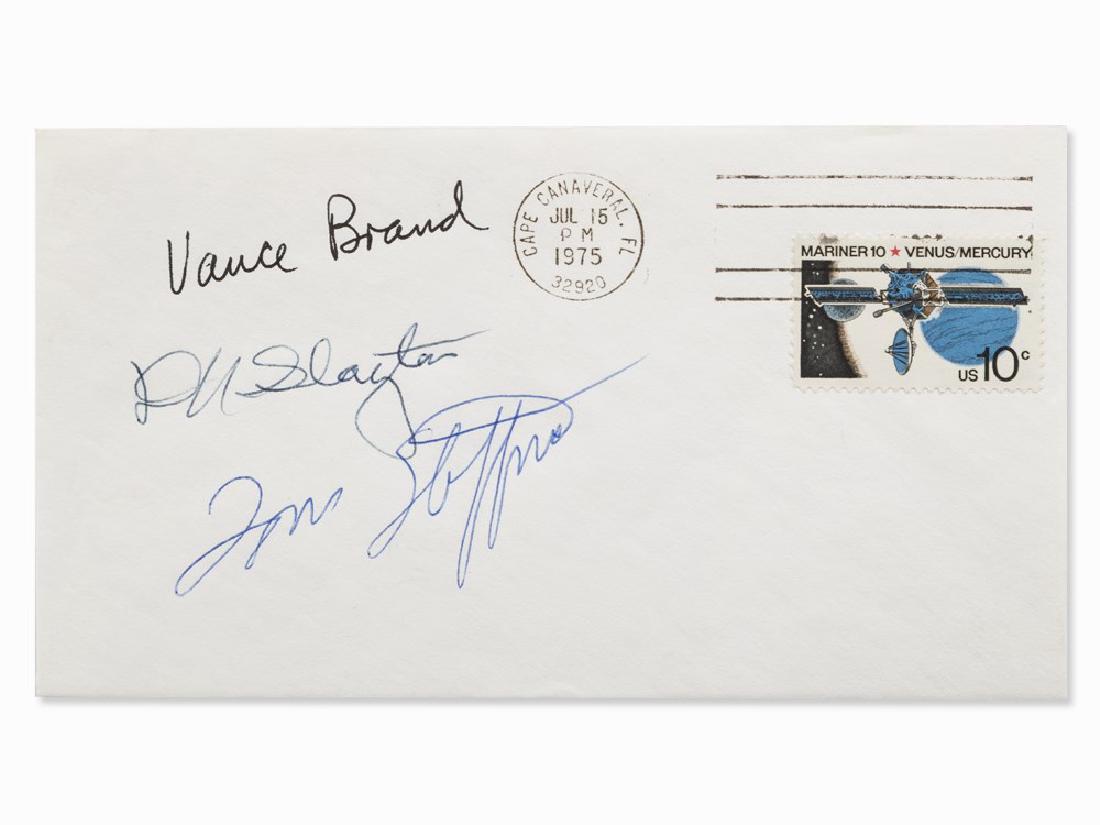 Vance Brand
CAPE CANAVERAL, FL
JUL 15
PM
1975
32920
MARINER 10 ★ VENUS/MERCURY
US 10c
DK Slayton
Tom Stafford